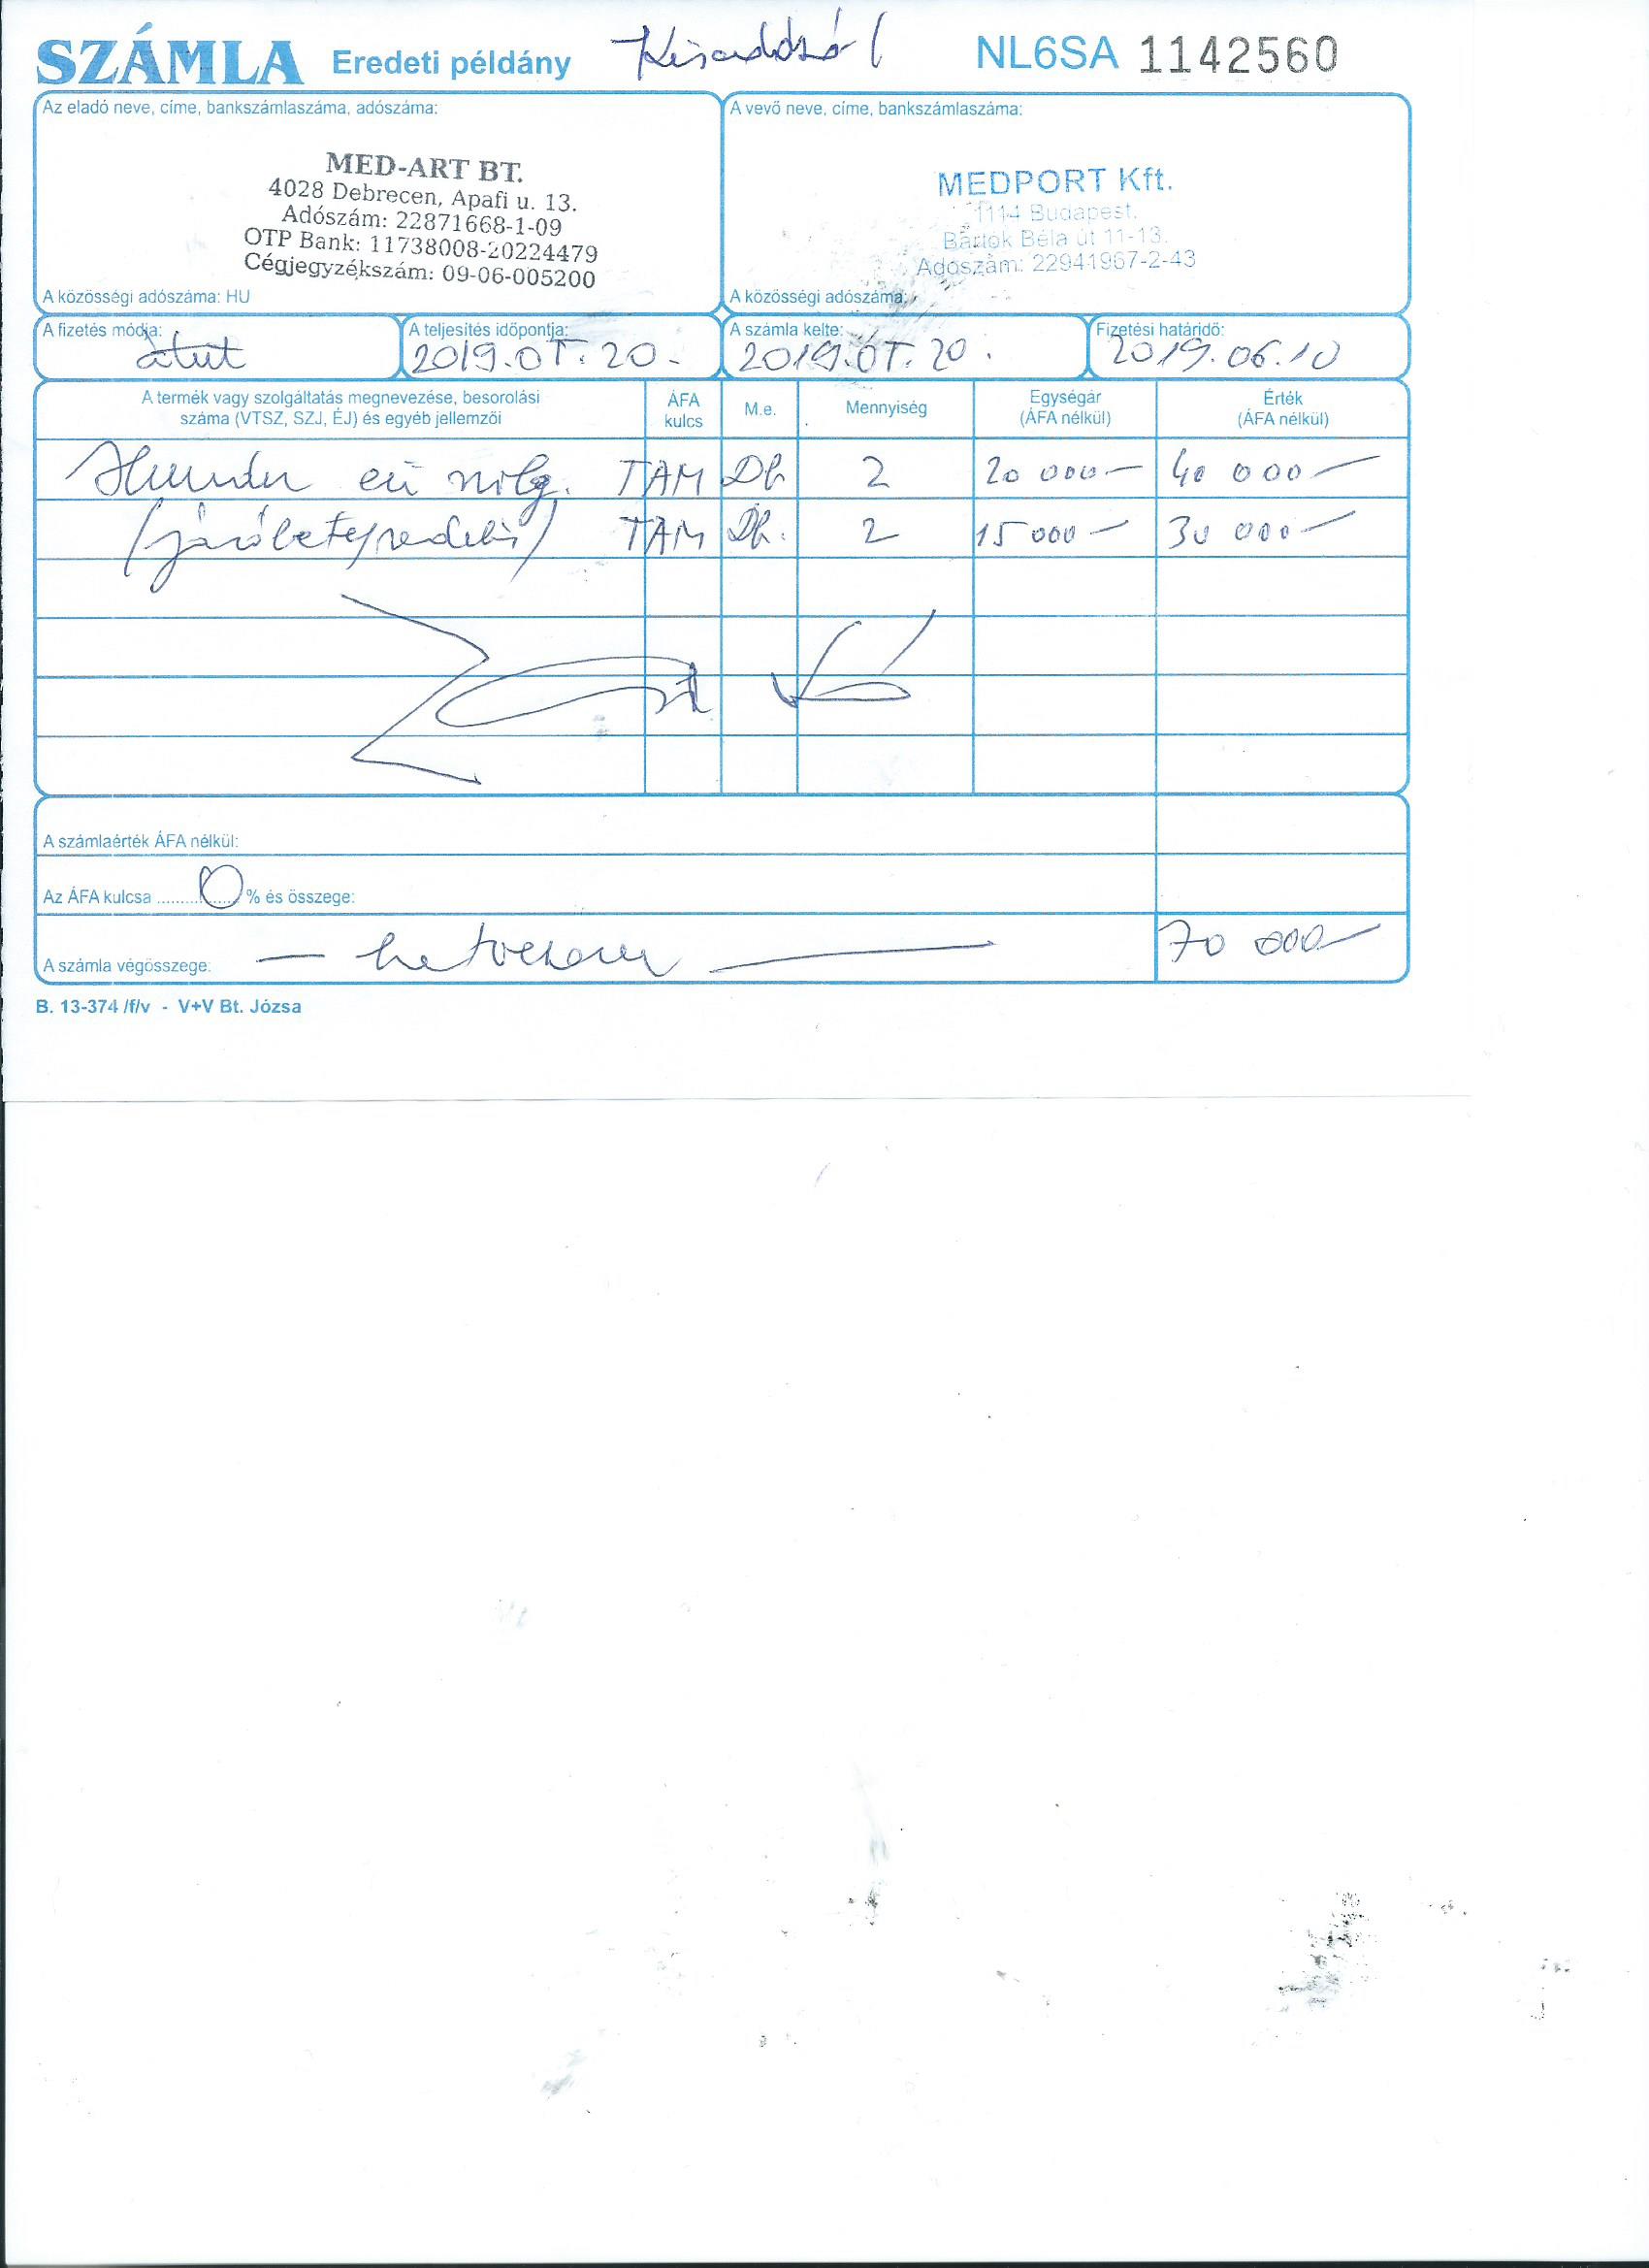 SZÁMLA Eredeti példány Kisadózó! NL6SA 1142560
Az eladó neve, címe, bankszámlaszáma, adószáma:
MED-ART BT.
4028 Debrecen, Apafi u. 13.
Adószám: 22871668-1-09
OTP Bank: 11738008-20224479
Cégjegyzékszám: 09-06-005200
A közösségi adószáma: HU
A vevő neve, címe, bankszámlaszáma:
MEDPORT Kft.
1114 Budapest,
Bartók Béla út 11-13.
Adószám: 22941967-2-43
A közösségi adószáma:
A fizetés módja: átut
A teljesítés időpontja: 2019.05.20.
A számla kelte: 2019.05.20.
Fizetési határidő: 2019.06.10
A termék vagy szolgáltatás megnevezése, besorolási
száma (VTSZ, SZJ, ÉJ) és egyéb jellemzői
ÁFA
kulcs
M.e.
Mennyiség
Egységár
(ÁFA nélkül)
Érték
(ÁFA nélkül)
Humán eü szolg. TAM Db 2 20 000- 40 000-
(járóbetegrendelés) TAM Db. 2 15 000- 30 000-
A számlaérték ÁFA nélkül:
Az ÁFA kulcsa ......0...... % és összege:
A számla végösszege: — hetvenezer — 70 000-
B. 13-374 /f/v - V+V Bt. Józsa